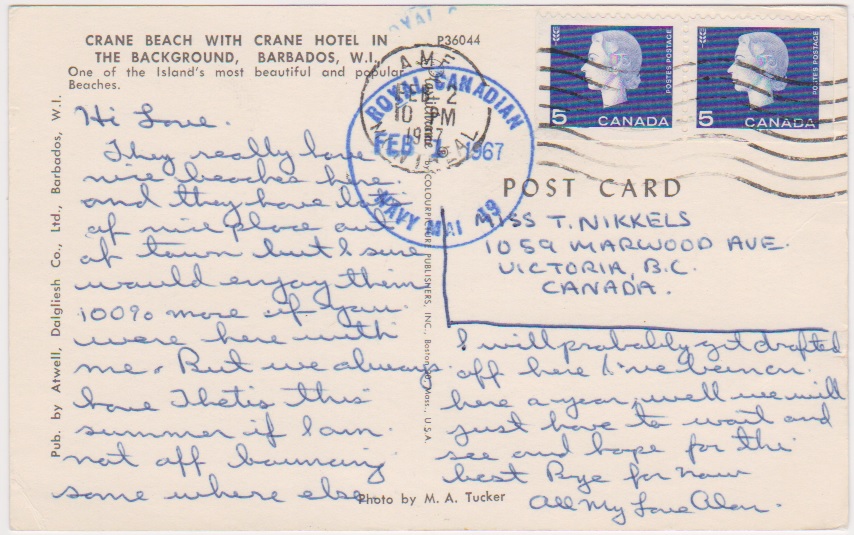 CRANE BEACH WITH CRANE HOTEL IN
THE BACKGROUND, BARBADOS, W.I.
One of the Island's most beautiful and popular
Beaches.
P36044
Pub. by Atwell, Dalgliesh Co., Ltd., Barbados, W.I.
Hi Love.
They really have
nice beaches here.
and they have lots
of nice place out
of town but I sure
would enjoy them
100% more if you
were here with
me. But we always
have Thetis this
summer if I am
not off bouncing
some where else.
Photo by M. A. Tucker
by COLOURPICTURE PUBLISHERS, INC., Boston 30, Mass., U.S.A.
ROYAL CANADIAN
FEB 1 1967
NAVY MAIL
FEB 2
10 PM
1967
5 CANADA
POSTES POSTAGE
5 CANADA
POSTES POSTAGE
POST CARD
MISS T. NIKKELS
1059 MARWOOD AVE.
VICTORIA, B.C.
CANADA.
I will probably get drafted
off here I've been on
here a year, well we will
just have to wait and
see and hope for the
best Bye for now
All My Love Alan.